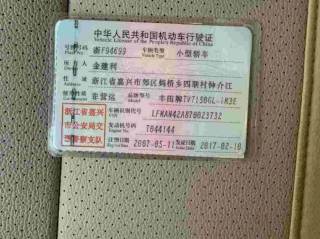 中华人民共和国机动车行驶证
Vehicle License of the People's Republic of China
号牌号码 浙F94699 车辆类型 小型轿车
Plate No. Vehicle Type
所有人 金建利
Owner
住址 浙江省嘉兴市郊区蚂桥乡四联村钟介江
Address
使用性质 非营运 品牌型号 丰田牌TV7150GL-iM3E
浙江省嘉兴
市公安局交
通警察支队
车辆识别代号
VIN
发动机号码 T044144
Engine No.
注册日期 2007-05-11 发证日期 2017-02-10
Register Date Issue Date